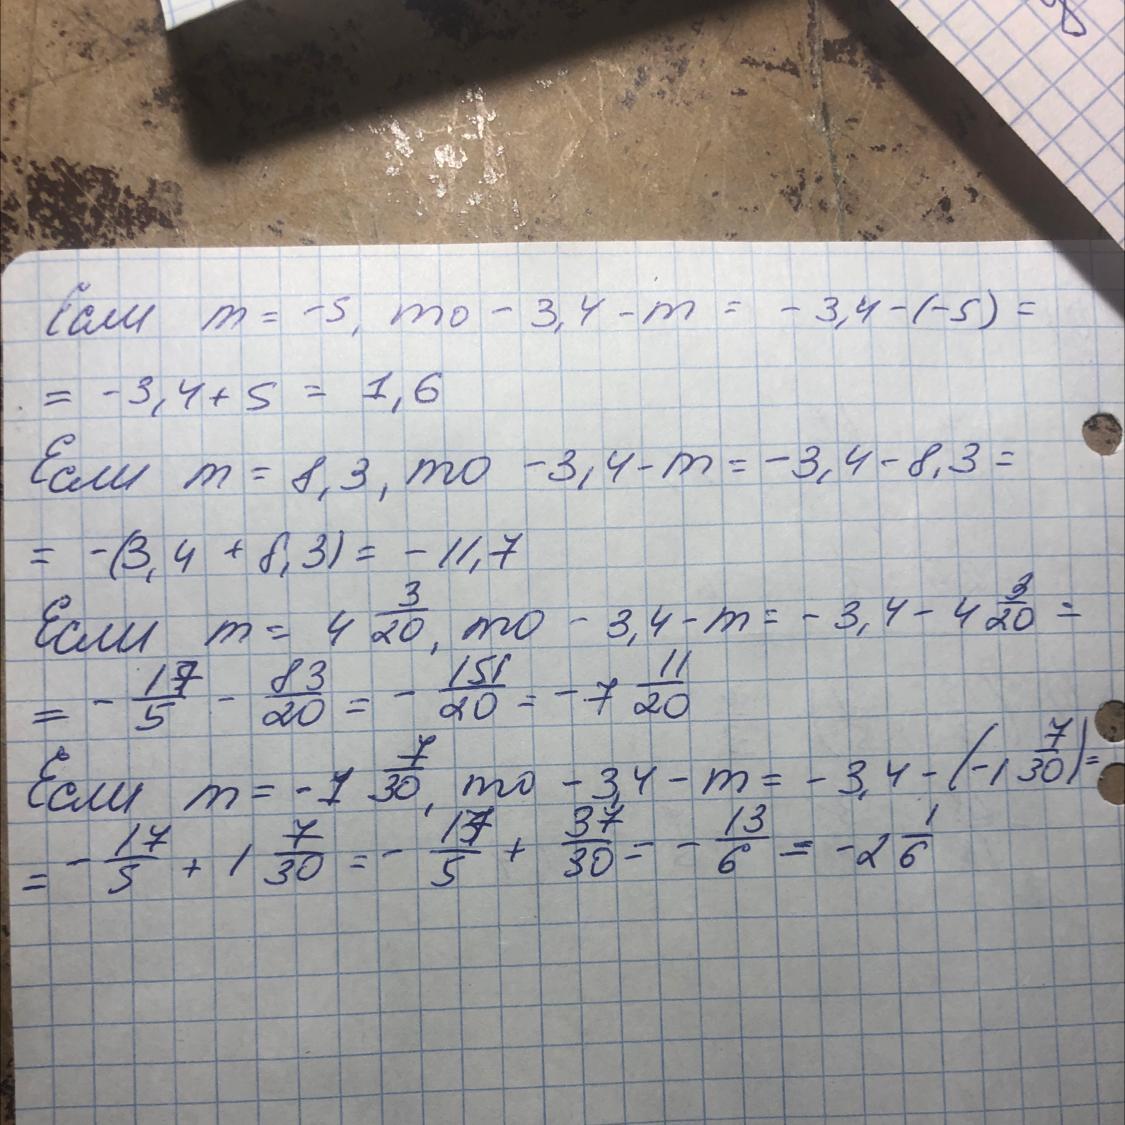 Если m = -5, то -3,4 - m = -3,4 - (-5) =
= -3,4 + 5 = 1,6
Если m = 8,3, то -3,4 - m = -3,4 - 8,3 =
= -(3,4 + 8,3) = -11,7
Если m = 4 3/20, то -3,4 - m = -3,4 - 4 3/20 =
= - 17/5 - 83/20 = - 151/20 = -7 11/20
Если m = -1 7/30, то -3,4 - m = -3,4 - (-1 7/30) =
= - 17/5 + 1 7/30 = - 17/5 + 37/30 = - 13/6 = -2 1/6